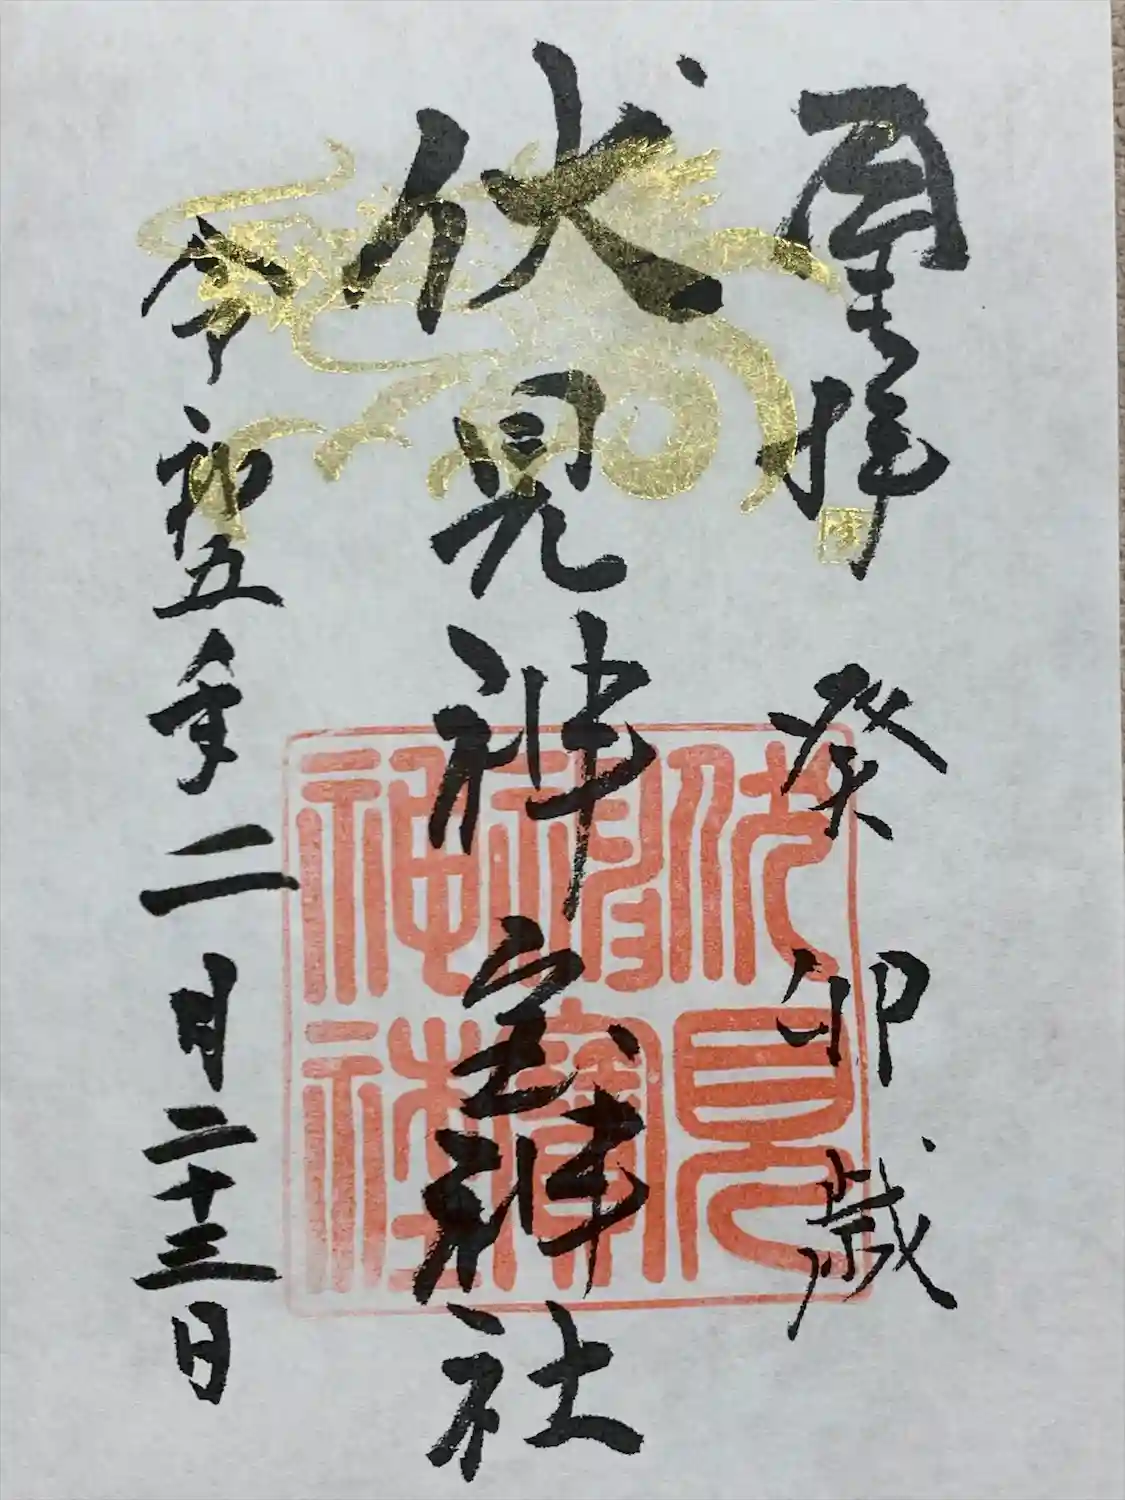 拝 癸卯歳
伏見神宝神社
令和五年二月二十三日
伏見
神寶
神社